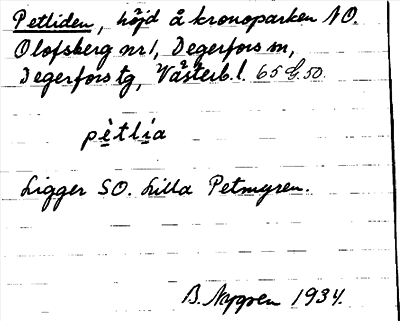 Petliden, höjd å kronoparken NO.
Olofsberg nr 1, Degerfors sn,
Degerfors tg, Västerb. l. 65 G. 50.
pètlia
Ligger SO. Lilla Petmyren.
B. Nygren 1934.